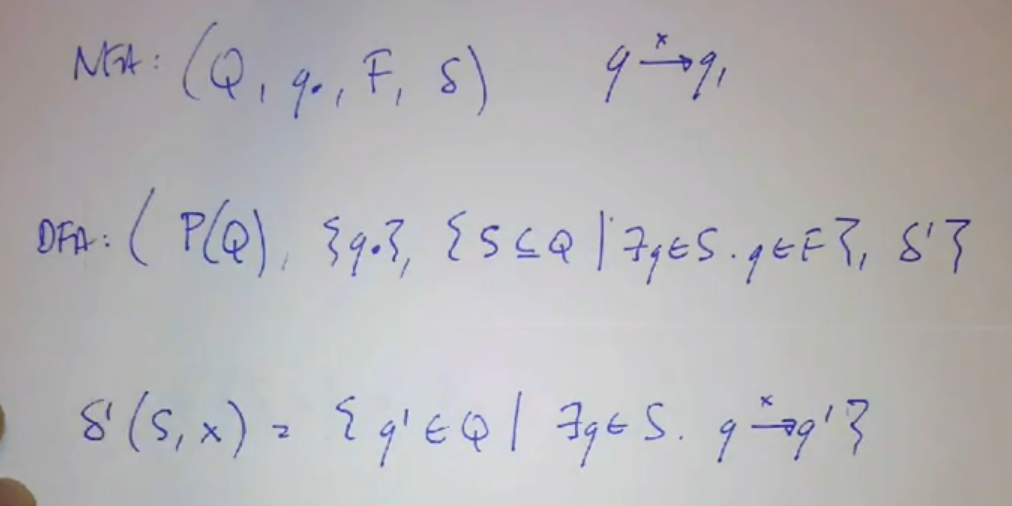 NFA: (Q, q₀, F, δ) q —x→ q₁
DFA: ( P(Q), {q₀}, {S ⊆ Q | ∃q ∈ S . q ∈ F}, δ' }
δ'(S, x) = { q' ∈ Q | ∃q ∈ S. q —x→ q' }